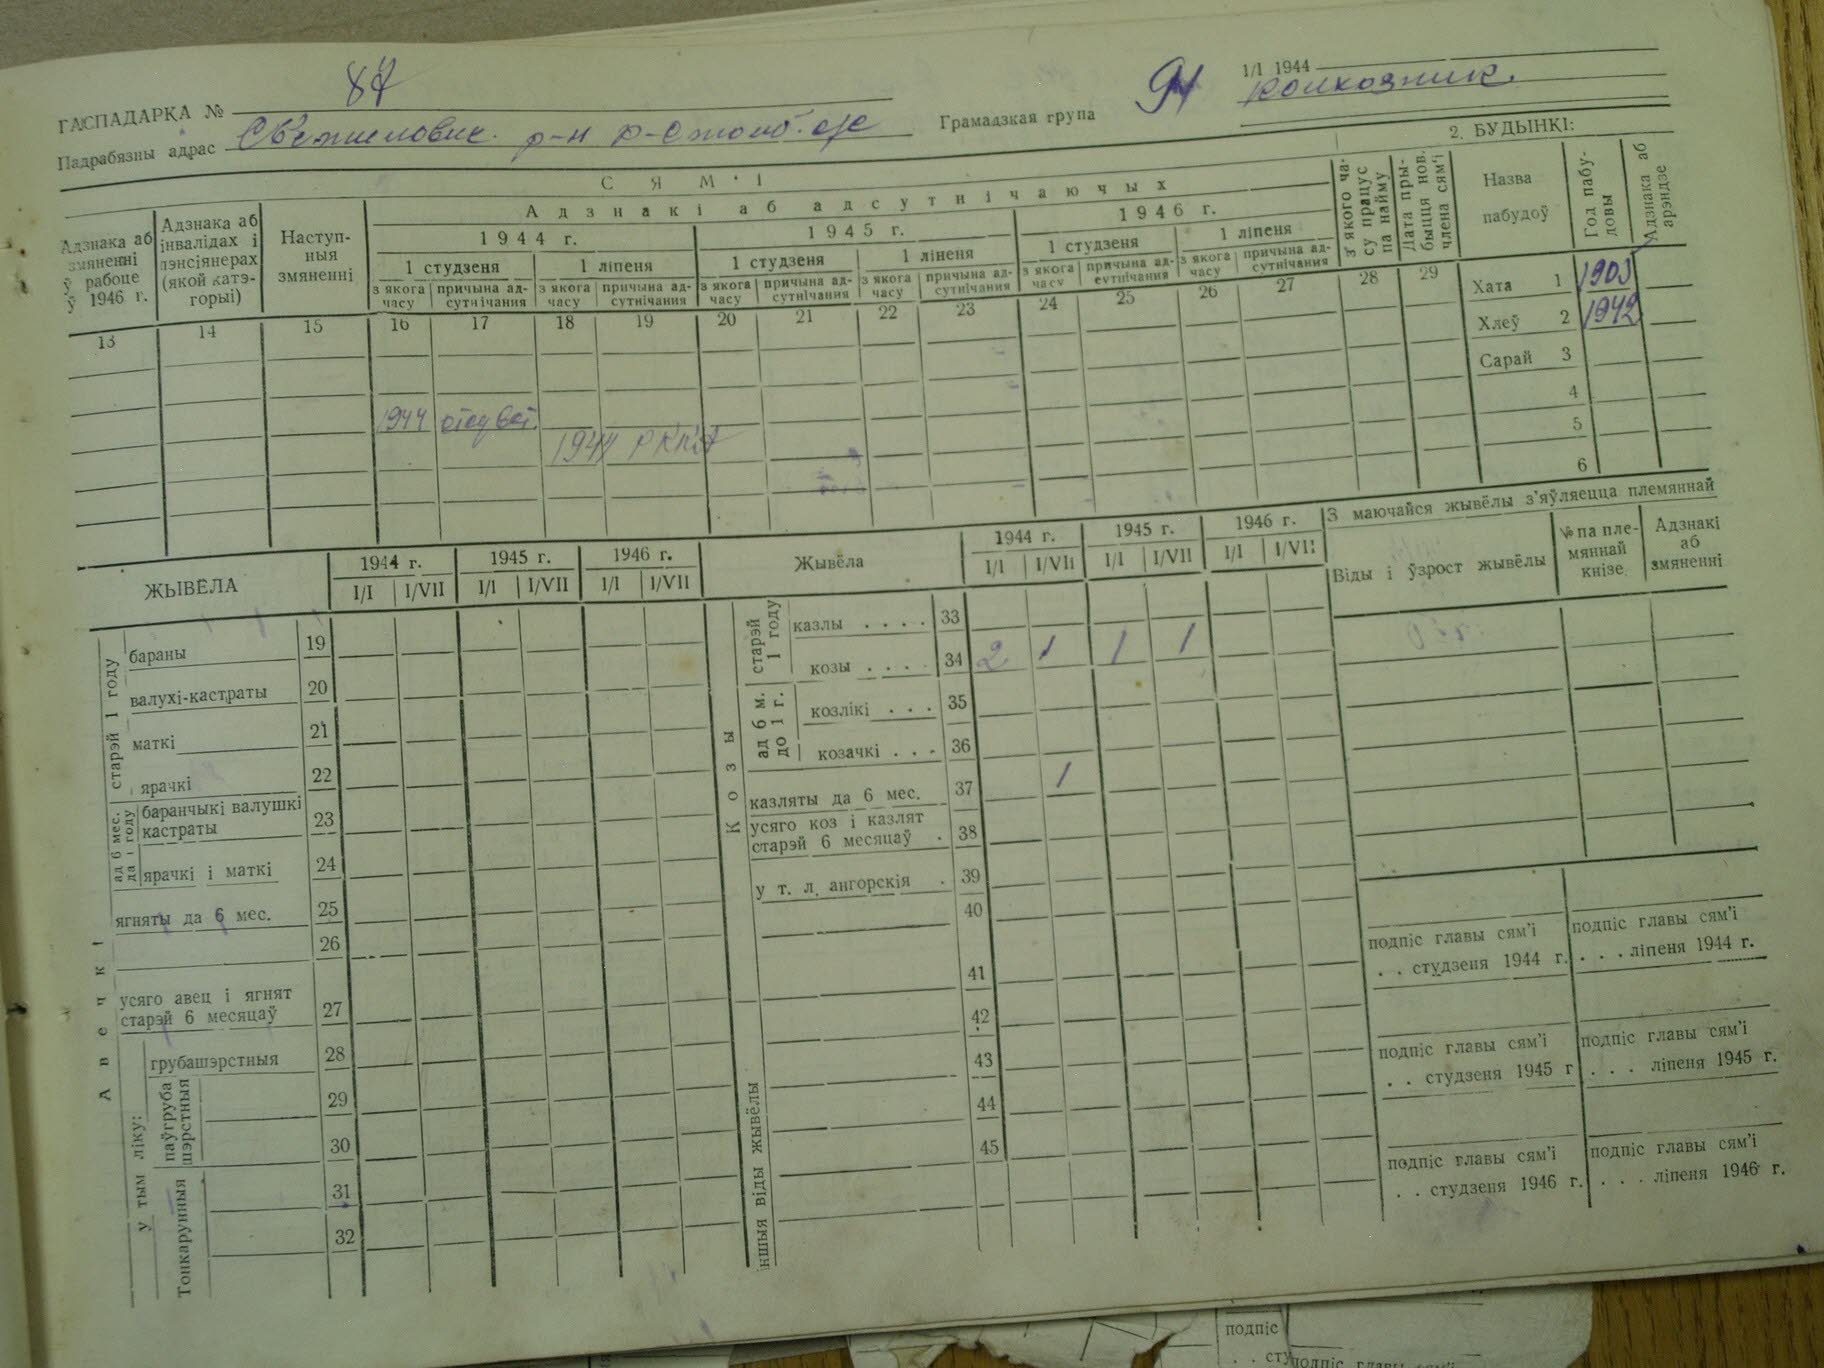 ГАСПАДАРКА № 87
94 1/I 1944
Грамадзкая група колхозник.
Падрабязны адрас
СЯМ'І
2. БУДЫНКІ:
Адзнакі аб адсутнічаючых
Адзнака аб змяненні ў рабоце ў 1946 г.
Адзнака аб інвалідах і пэнсіянерах (якой катэгорыі)
Наступныя змяненні
1944 г. 1945 г. 1946 г.
1 студзеня 1 ліпеня 1 студзеня 1 ліпеня 1 студзеня 1 ліпеня
з якога часу причына адсутнічання з якога часу причына адсутнічання з якога часу причына адсутнічання з якога часу причына адсутнічання з якога часу причына адсутнічання з якога часу причына адсутнічания
з якога часу працуе па найму
Дата прыбыцця нов. члена сям'і
Назва пабудоў
Год пабудовы
Адзнака аб арэндзе
13 14 15 16 17 18 19 20 21 22 23 24 25 26 27 28 29
Хата 1 1903
Хлеў 2 1942
Сарай 3
4
5
6
1944
1944 РККА
ЖЫВЁЛА
1944 г. 1945 г. 1946 г.
I/I I/VII I/I I/VII I/I I/VII
Авечкі
старэй 1 году
бараны 19
валухі-кастраты 20
маткі 21
ярачкі 22
ад 6 мес. да 1 году
баранчыкі валушкі кастраты 23
ярачкі і маткі 24
ягняты да 6 мес. 25
26
усяго авец і ягнят старэй 6 месяцаў 27
у тым ліку:
грубашэрстныя 28
паўгруба шэрстныя
29
30
Тонкарунныя
31
32
Жывёла
1944 г. 1945 г. 1946 г.
I/I I/VII I/I I/VII I/I I/VII
Козы
старэй 1 году
казлы . . . . 33
козы . . . . 34 2 1 1 1
ад 6 м. до 1 г.
козлікі . . . 35
козачкі . . . 36
казляты да 6 мес. 37 1
усяго коз і казлят старэй 6 месяцаў . 38
у т. л. ангорскія . 39
40
іншыя віды жывёлы
41
42
43
44
45
З маючайся жывёлы з'яўляецца племяннай
Віды і ўзрост жывёлы
№ па племяннай кнізе
Адзнакі аб змяненні
подпіс главы сям'і . . студзеня 1944 г.
подпіс главы сям'і . . . ліпеня 1944 г.
подпіс главы сям'і . . студзеня 1945 г
подпіс главы сям'і . . . ліпеня 1945 г.
подпіс главы сям'і . . студзеня 1946 г.
подпіс главы сям'і . . . ліпеня 1946 г.
подпіс